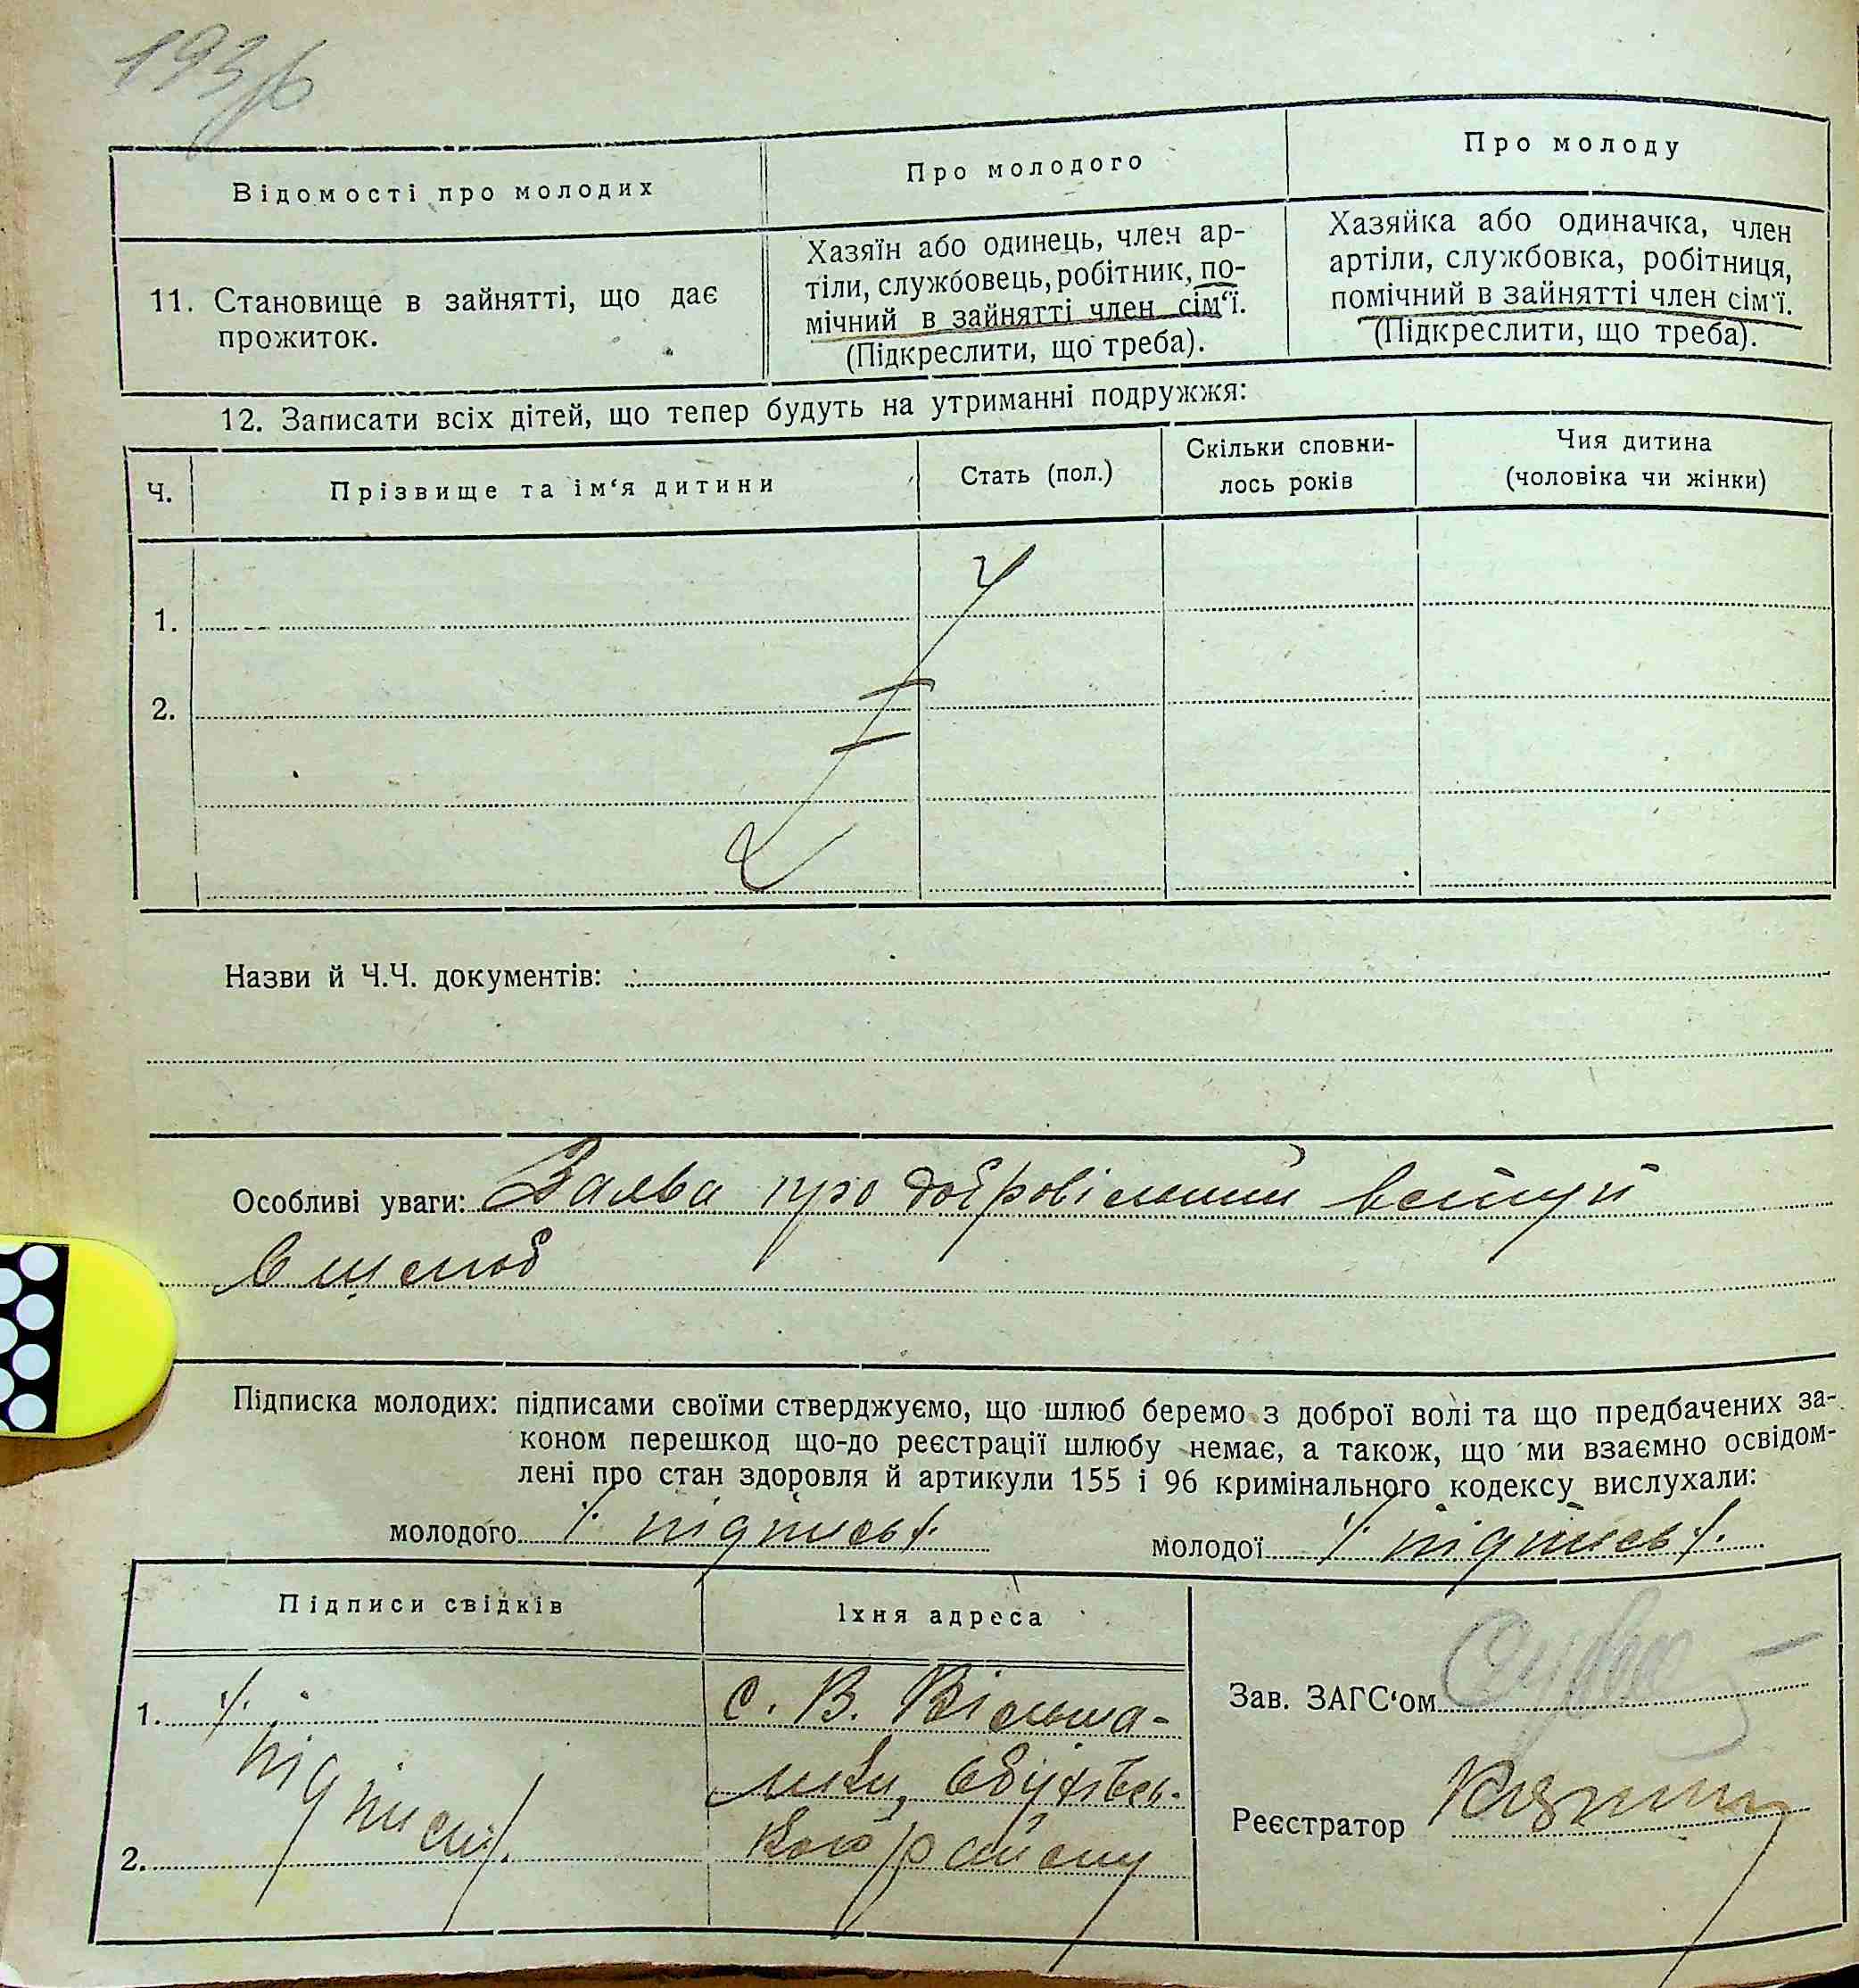 193
Відомості про молодих
Про молодого
Про молоду
11. Становище в зайнятті, що дає
прожиток.
Хазяїн або одинець, член ар-
тіли, службовець, робітник, по-
мічний в зайнятті член сім‘ї.
(Підкреслити, що треба).
Хазяйка або одиначка, член
артіли, службовка, робітниця,
помічний в зайнятті член сім‘ї.
(Підкреслити, що треба).
12. Записати всіх дітей, що тепер будуть на утриманні подружжя:
Ч.
Прізвище та ім‘я дитини
Стать (пол.)
Скільки сповни-
лось років
Чия дитина
(чоловіка чи жінки)
1.
2.
Назви й Ч.Ч. документів:
Особливі уваги: Заява про добровільний вступ
в шлюб
Підписка молодих: підписами своїми стверджуємо, що шлюб беремо з доброї волі та що предбачених за-
коном перешкод що-до реєстрації шлюбу немає, а також, що ми взаємно освідом-
лені про стан здоровля й артикули 155 і 96 кримінального кодексу вислухали:
молодого /: підпись /. молодої /: підпись /.
Підписи свідків
Їхня адреса
1. /:
підписи /.
2.
с. В. Вільша-
нки, Обухівсь-
кого району
Зав. ЗАГС‘ом
Реєстратор